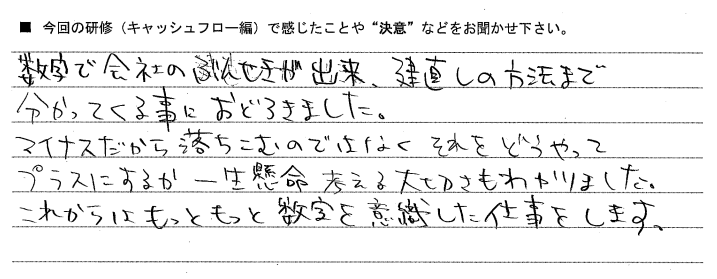 ■ 今回の研修（キャッシュフロー編）で感じたことや“決意”などをお聞かせ下さい。
数字で会社の ぶんせきが 出来、建直しの方法まで
分かってくる事に おどろきました。
マイナスだから 落ちこむのではなく それを どうやって
プラスにするか 一生懸命 考える大切さもわかりました。
これからは もっともっと 数字を 意識した仕事をします。